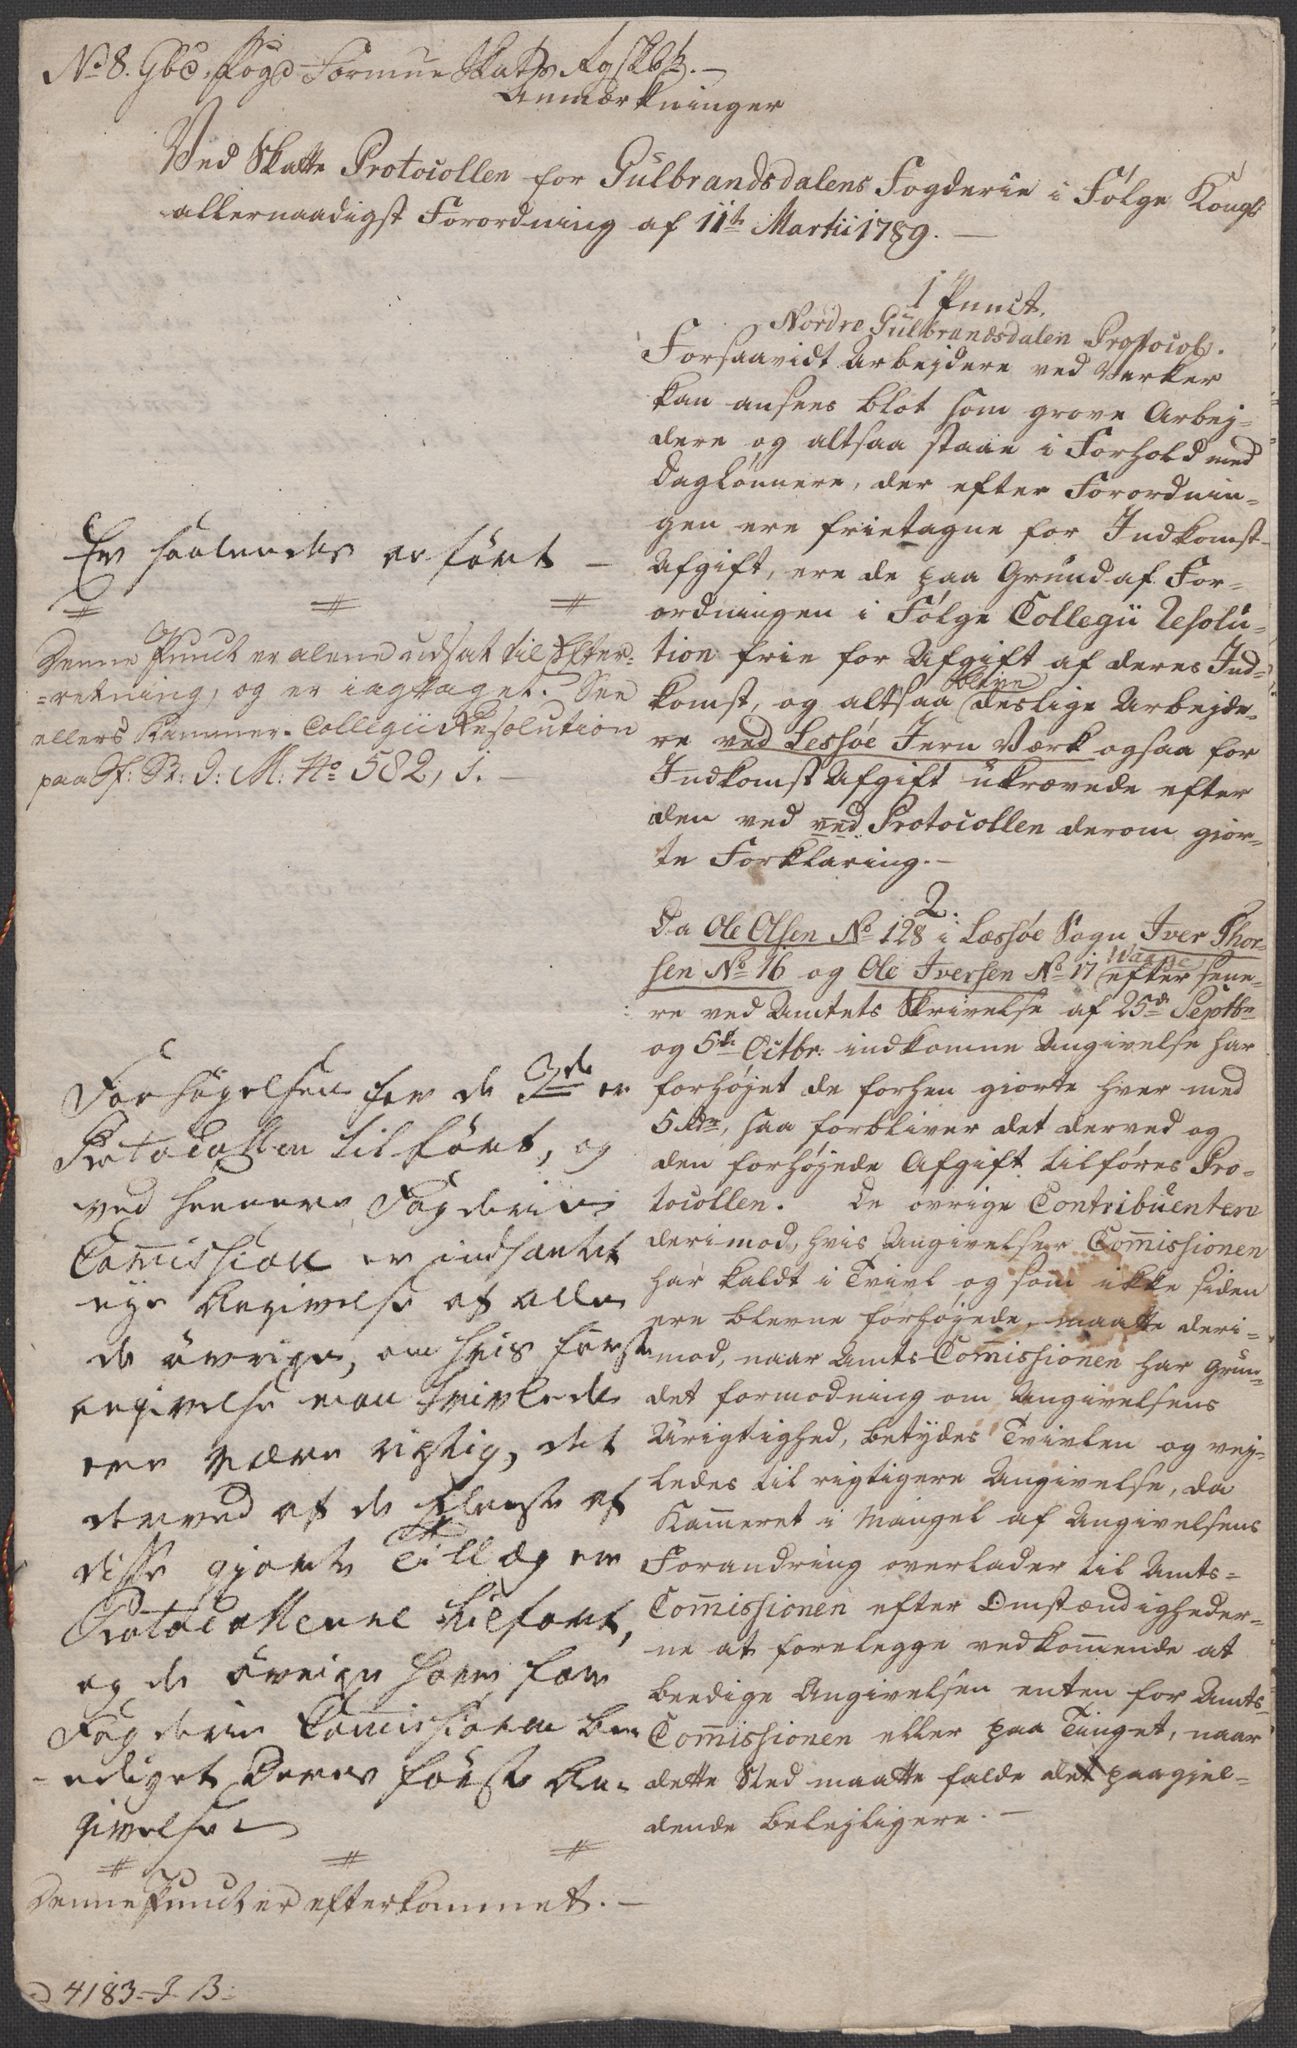 No 8. Gbd. Fogd. Formue Skatts
Anmærkninger
Ved Skatte Protocollen for Gulbrandsdalens Fogderie i Følge Kongl.
allernaadigst Forordning af 11te Martii 1789. —
1 Punct.
Nordre Gulbrandsdalen Protocol.
Forsaavidt Arbejdere ved Verker
kan ansees blot som grove Arbej-
dere og altsaa staae i Forhold med
Daglønnere, der efter Forordnin-
gen ere frietagne for Indkomst-
Afgift, ere de paa Grund af For-
ordningen i Følge Collegii Resolu-
tion frie for Afgift af deres Ind-
komst, og altsaa blive deslige Arbejde-
re ved Lessøe Jern Værk ogsaa for
Indkomst Afgift ukrævede efter
den ved ved Protocollen derom gior-
te Forklaring. —
Er saaledes erført —
Denne Punct er alene udsat til Efter-
=retning, og er iagtaget. See
ellers Kammer-Collegii Resolution
paa No 582, 1. —
2.
Da Ole Olsen No 128 i Læssøe Sogn Iver Thor-
sen No 16 og Ole Iversen No 17 Waage efter sene-
re ved Amtets Skrivelse af 25de Septbr
og 5te Octbr. indkomne Angivelse har
forhøjet de forhen giorte hver med
5 Rdr, saa forbliver det derved og
den forhøjede Afgift tilføres Pro-
tocollen. De øvrige Contribuentere
derimod, hvis Angivelser Commissionen
har kaldt i Tvivl og som ikke siden
ere blevne forhøjede, maatte deri-
mod, naar Amts-Commissionen har grun-
det formodning om Angivelsens
Urigtighed, betydes Tvivlen og vej-
ledes til rigtigere Angivelse, da
Kammeret i Mangel af Angivelsens
Forandring overlader til Amts-
Commissionen efter Omstændigheder-
ne at forelegge vedkommende at
beedige Angivelsen enten for Amts-
Commissionen eller paa Tinget, naar
dette Sted maatte falde det paagiel-
dende belejligere. —
Forhøyelsen for de 3de er
Protocollen tilført, og
ved Fogderie
Commission er indhentet
nye Angivelse af alle
de øvrige, om hvis første
angivelse man tvivlede
om være rigtig, det
derved af de fleeste af
disse gjorte Tillæg er
Protocollerne tilført,
og de øvrige have for
Fogderie Commissionen be-
ediget Deres første An-
givelse
Denne Punct er efterkommet. —
4183-J B: